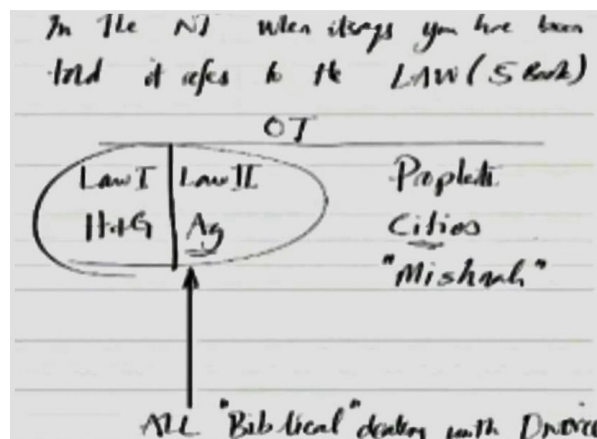 In the NT when it says you have been
told it refers to the LAW (5 Book)
OT
Law I Law II Prophets
H+G Ag Cities
"Mishnah"
ALL "Biblical" dealing with Divorce